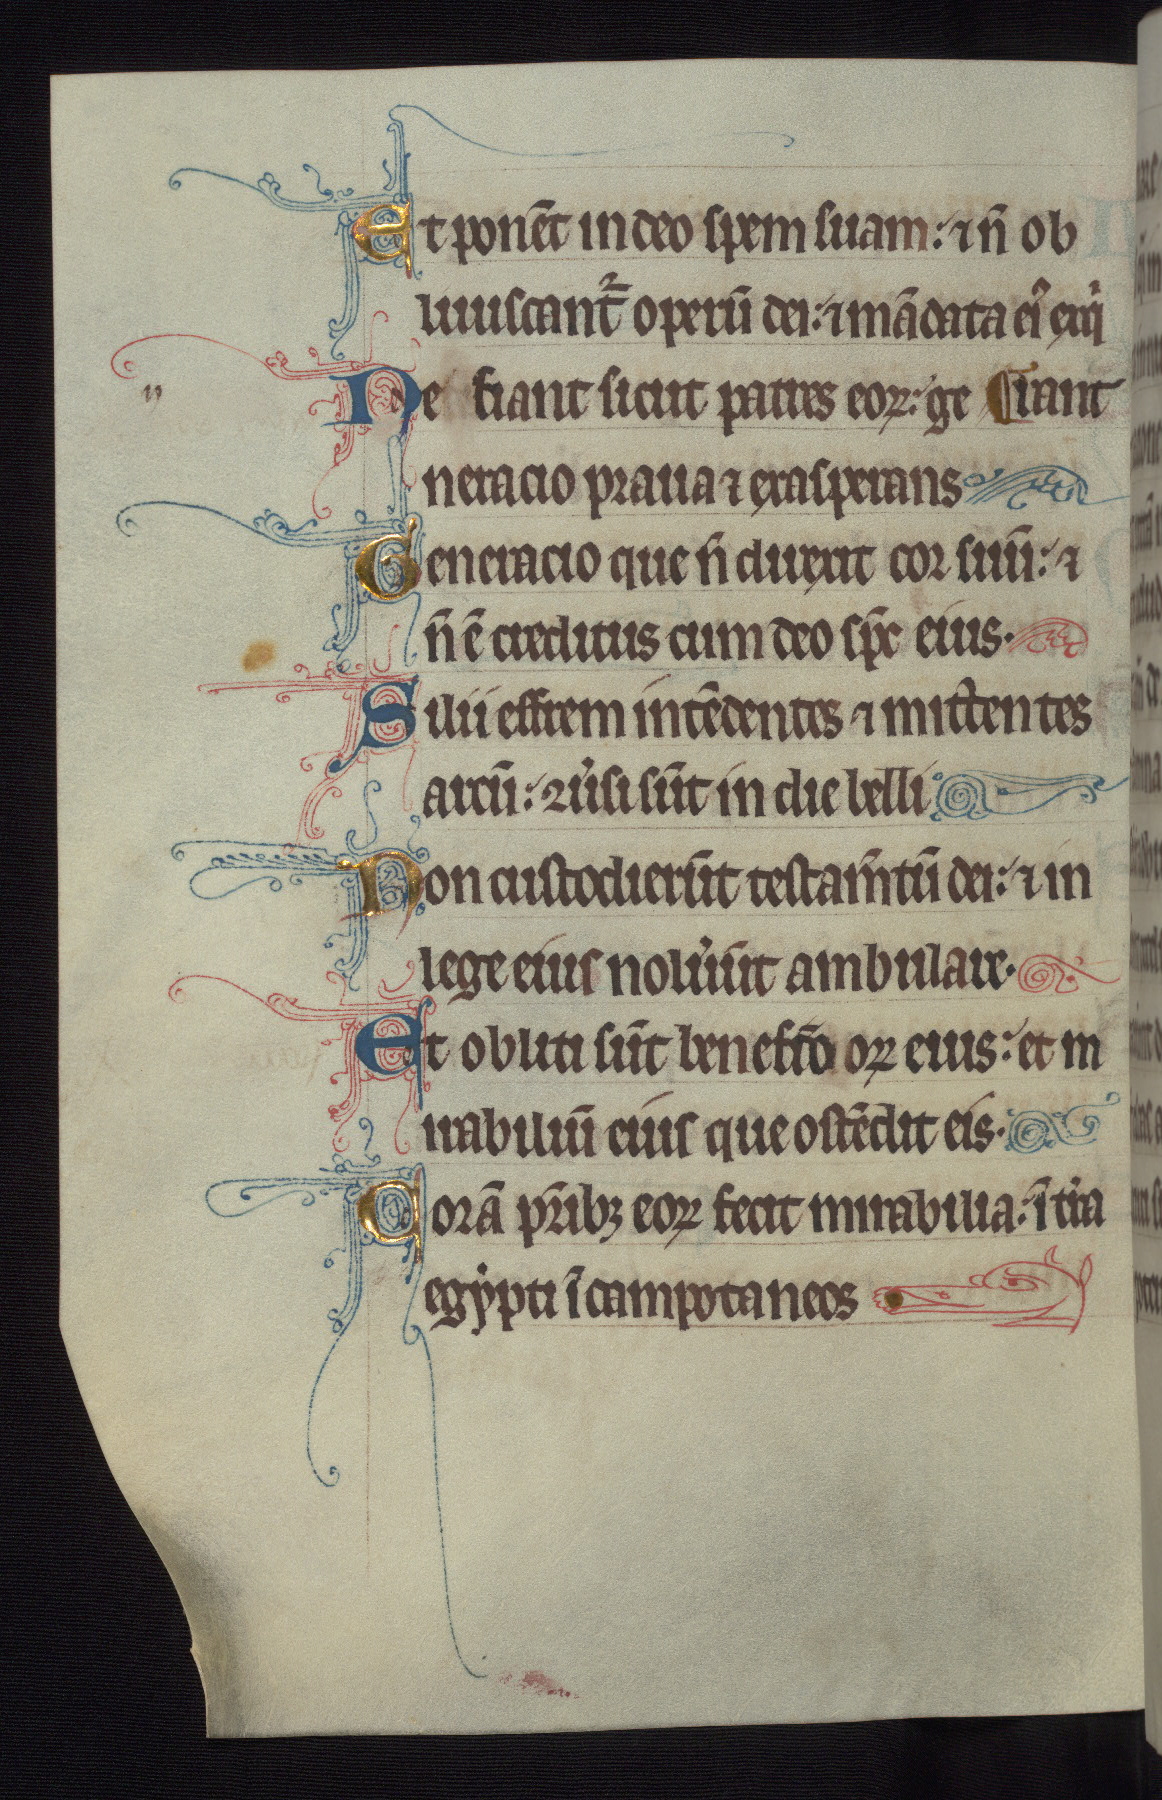 Et ponēt in deo spem suam: ⁊ n̄ ob
liuiscant᷑ operū dei: ⁊ mādata ei᷒ exq̇
Ne fiant sicut patres eoꝝ: ge ¶ rant
neracio praua ⁊ exasperans
Generacio que n̄ direxit cor suū: ⁊
n̄ ē creditus cum deo sp̄c eius.
Filii effrem intēdentes ⁊ mittentes
arcū: ꝯu̓si sūt in die belli
Non custodierūt testam̄tū dei: ⁊ in
lege eius nolu̓ūt ambulare.
Et obliti sūt beneffco oꝝ eius: et m
irabiliū eius que ostēdit eis.
Corā pr̄ibꝫ eoꝝ fecit mirabilia: ī tr̓a
egẏpti ī campo taneos